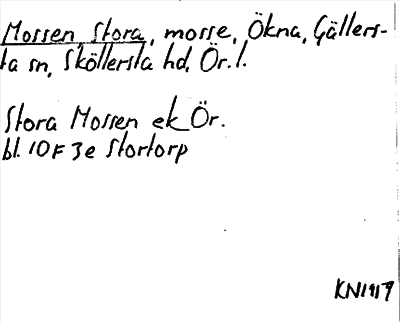 Mossen, Stora, mosse, Ökna, Gällers-
ta sn, Sköllersta hd, Ör. l.
Stora Mossen ek Ör.
bl. 10F 3e Stortorp